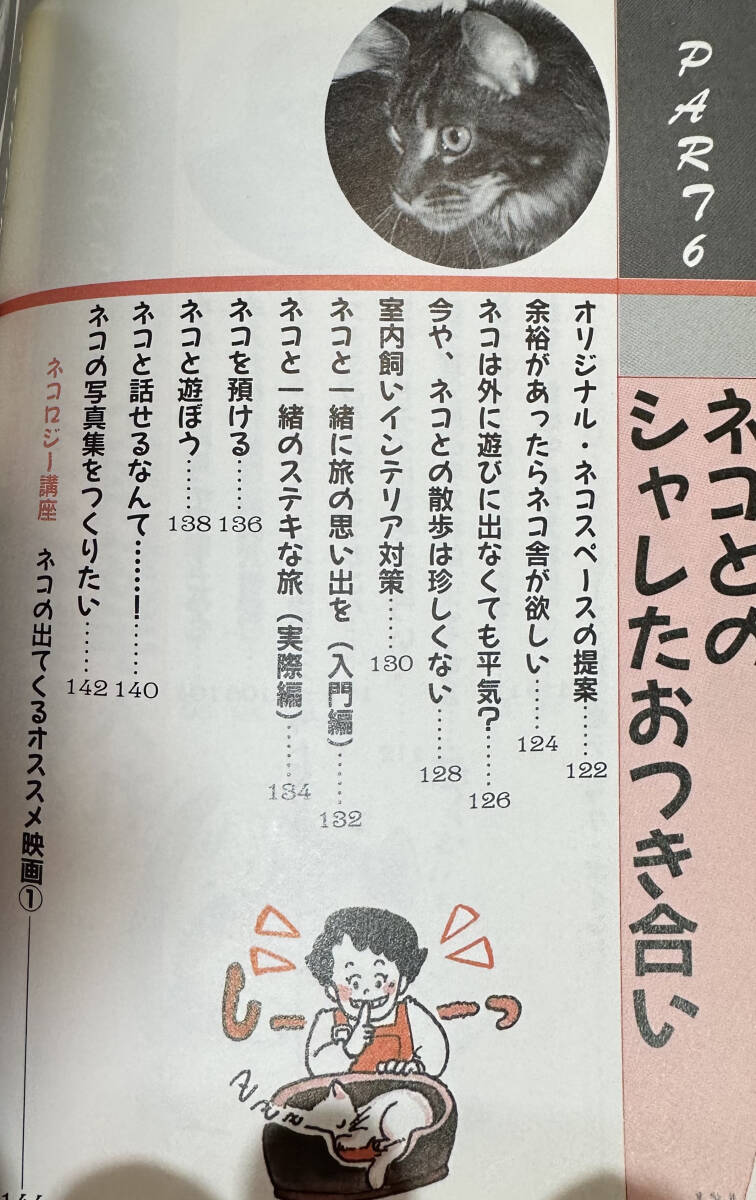 PART6
ネコとの
シャレたおつき合い
オリジナル・ネコスペースの提案……122
余裕があったらネコ舎が欲しい……124
ネコは外に遊びに出なくても平気?……126
今や、ネコとの散歩は珍しくない……128
室内飼いインテリア対策……130
ネコと一緒に旅の思い出を(入門編)……132
ネコと一緒のステキな旅(実際編)……134
ネコを預ける……136
ネコと遊ぼう……138
ネコと話せるなんて……!……140
ネコの写真集をつくりたい……142
ネコロジー講座 ネコの出てくるオススメ映画①
しーーっ
Zzzz